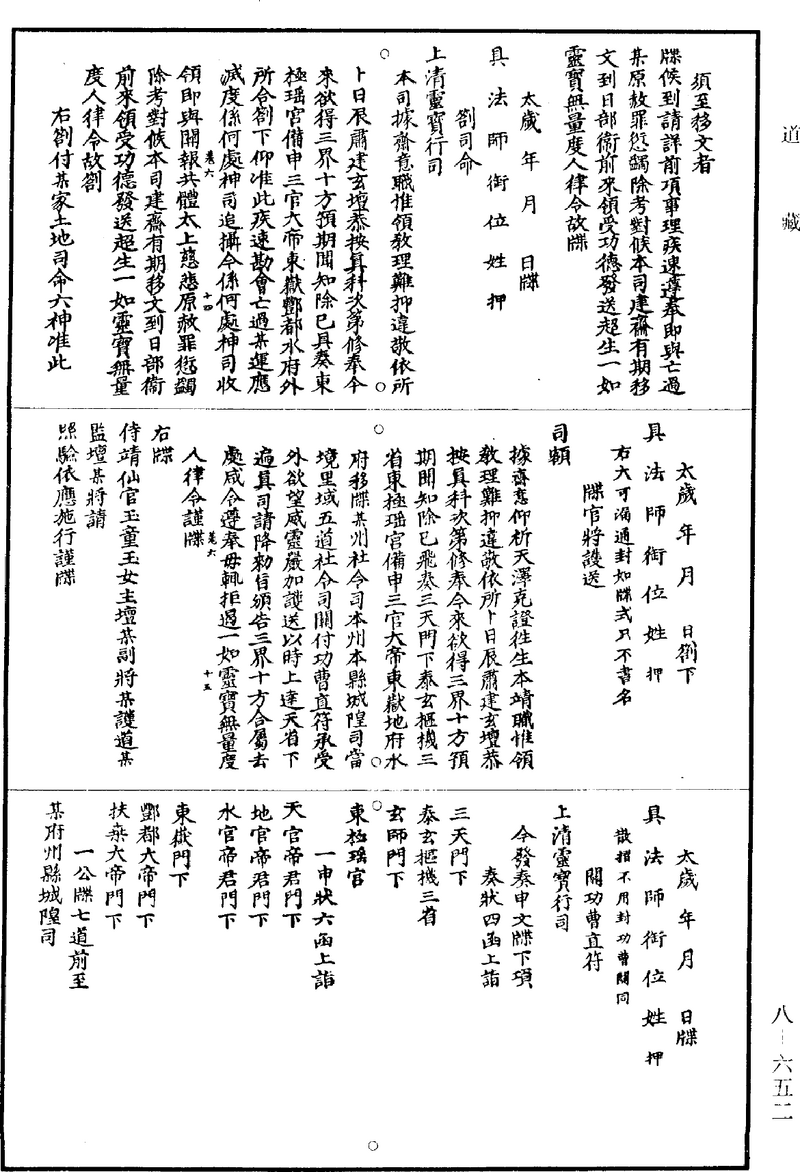 道藏
須至移文者
牒候到請詳前項事理疾速遵奉即與亡過
某原赦罪愆蠲除考對候本司建齋有期移
文到日部衛前來領受功德發送超生一如
靈寶無量度人律令故牒
太歲年月日牒
具法師銜位姓押
劄司命
上清靈寶行司
本司據齋意職惟領教理難抑違敬依所
卜日辰肅建玄壇恭按真科次第修奉今
來欲得三界十方預期聞知除已具奏東
極瑶宮備申三官大帝東嶽酆都水府外
所合劄下仰准此疾速勘會亡過某運應
滅度係何處神司追攝今係何處神司收
卷六 十四
領即與開報共體太上慈悲原赦罪愆蠲
除考對候本司建齋有期移文到日部衛
前來領受功德發送超生一如靈寶無量
度人律令故劄
右劄付某家土地司命六神准此
太歲年月日劄下
具法師銜位姓押
右大可漏通封如牒式只不書名
牒官將護送
司額
據齋意仰祈天澤克證往生本靖職惟領
教理難抑違敬依所卜日辰肅建玄壇恭
按真科次第修奉今來欲得三界十方預
期聞知除已飛奏三天門下泰玄摳機三
省東極瑶宮備申三官大帝東嶽地府水
府移牒某州社令司本州本縣城隍司當
境里域五道社令司關付功曹直符承受
外欲望威靈嚴加護送以時上達天省下
遍真司請降勑旨頒告三界十方合屬去
處咸令遵奉毋輒拒遏一如靈寶無量度
卷六 十五
人律令謹牒
右牒
侍靖仙官玉童玉女主壇某副將某護道某
監壇某將請
照驗依應施行謹牒
太歲年月日牒
具法師銜位姓押
散招不用封功曹關同
關功曹直符
上清靈寶行司
今發奏申文牒下項
奏狀四函上詣
三天門下
泰玄摳機三省
玄師門下
東極瑶宮
一申狀六函上詣
天官帝君門下
地官帝君門下
水官帝君門下
東嶽門下
酆都大帝門下
扶桑大帝門下
一公牒七道前至
某府州縣城隍司
八-六五二